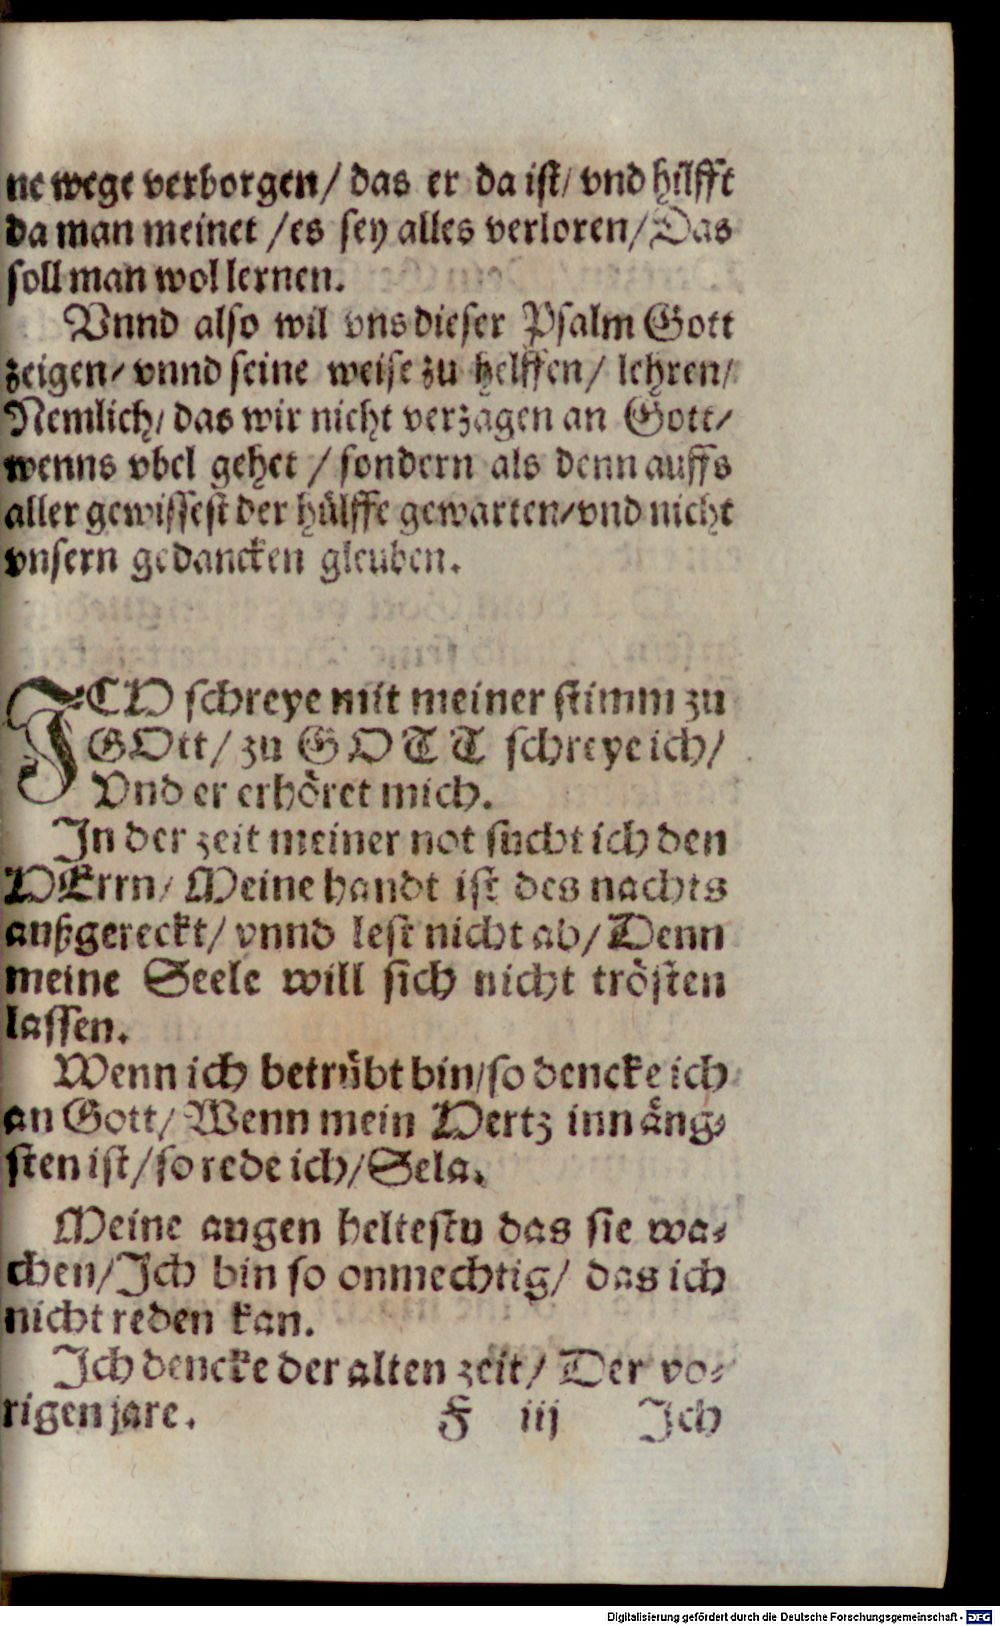 ne wege verborgen/ das er da ist/ vnd hilfft
da man meinet /es sey alles verloren/Das
soll man wol lernen.
Vnnd also wil vns dieser Psalm Gott
zeigen/ vnnd seine weise zu helffen/ lehren/
Nemlich/ das wir nicht verzagen an Gott/
wenns vbel gehet / sondern als denn auffs
aller gewissest der hülffe gewarten/vnd nicht
vnsern gedancken gleuben.
ICH schreye mit meiner stimm zu
GOtt/ zu GOTT schreye ich/
Vnd er erhöret mich.
In der zeit meiner not sucht ich den
HErrn/ Meine handt ist des nachts
außgereckt/ vnnd lest nicht ab/ Denn
meine Seele will sich nicht trösten
lassen.
Wenn ich betrübt bin/so dencke ich
an Gott/ Wenn mein Hertz inn äng-
sten ist/so rede ich/Sela.
Meine augen heltestu das sie wa-
chen/Ich bin so onmechtig/ das ich
nicht reden kan.
Ich dencke der alten zeit/ Der vo-
rigen jare.
F iij Ich
Digitalisierung gefördert durch die Deutsche Forschungsgemeinschaft - DFG